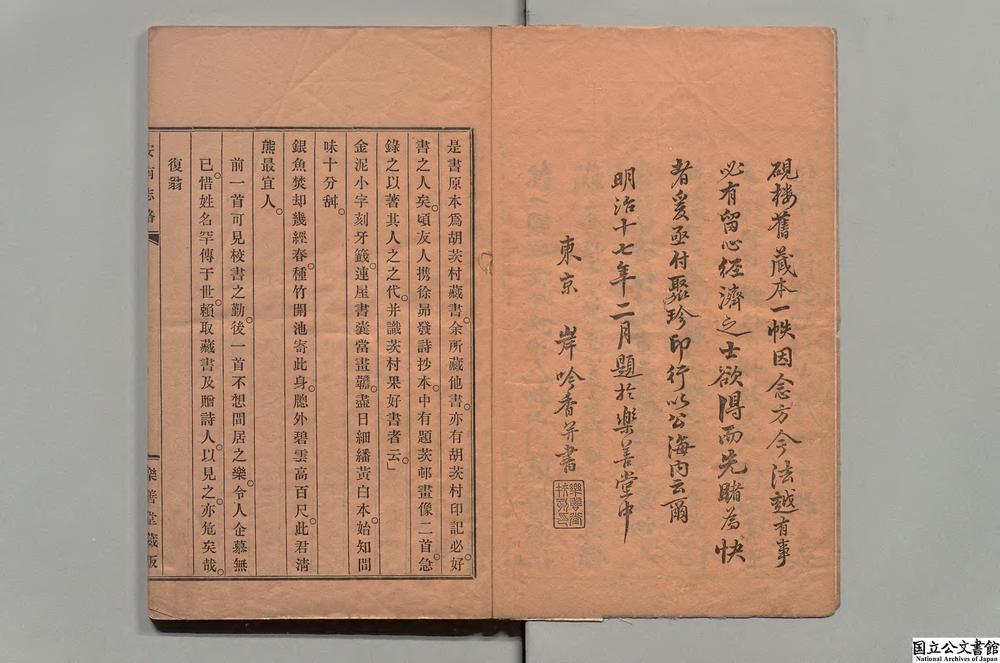 硯楼舊藏本一帙因念方今法越有事
必有留心經濟之士欲得而先睹為快
者爰亟付聚珍印行以公海內云爾
明治十七年二月題於樂善堂中
東京 岸吟香并書
是書原本爲胡茨村藏書。余所藏他書。亦有胡茨村印記。必好
書之人矣。頃友人携徐昴發詩抄本。中有題茨邨畫像二首。急
錄之以著其人之之代。并識茨村果好書者云」
金泥小字刻牙籤。連屋書囊當畫簷。盡日細繙黃白本。始知閒
味十分甜。
銀魚焚却幾經春。種竹開池寄此身。胞外碧雲高百尺。此君淸
熊最宜人。
前一首可見校書之勤。後一首不想間居之樂。令人企慕無
已。惜姓名罕傳于世。賴取藏書及贈詩人。以見之。亦危矣哉。
復翁
安南志略
樂善堂藏版
国立公文書館
National Archives of Japan